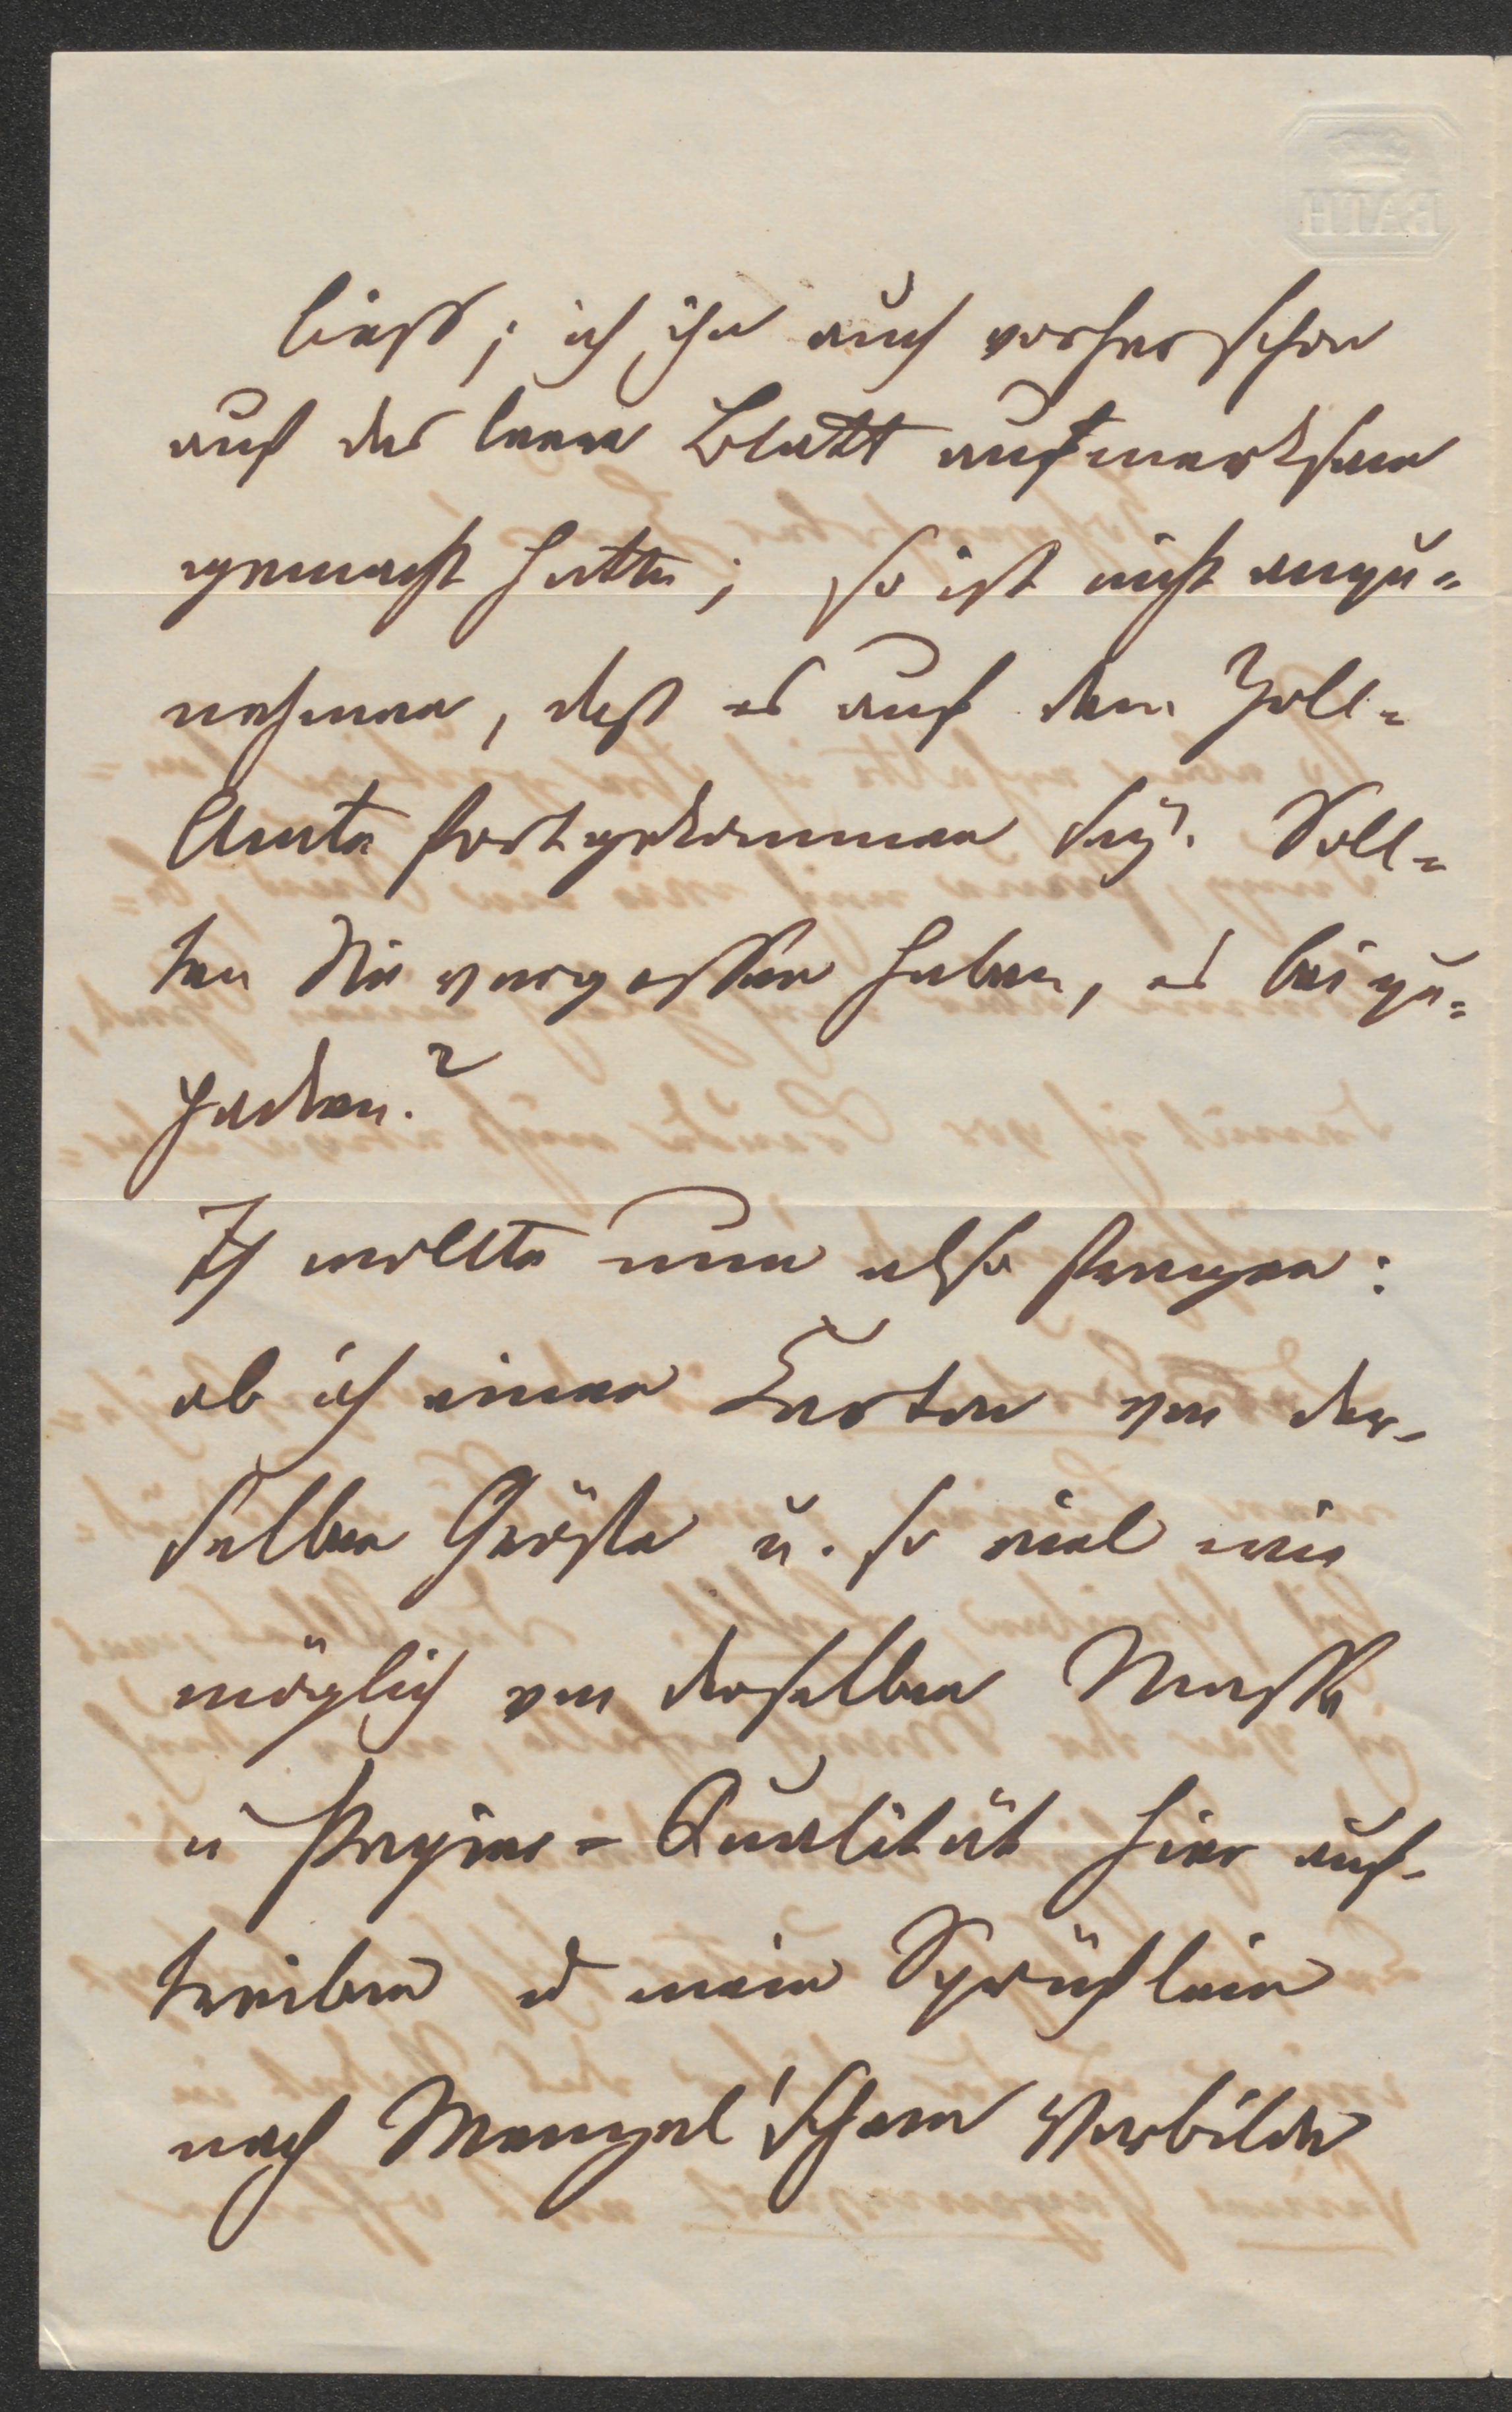 BATH
ließ; ich ihn auch vorher schon
auf das leere Blatt aufmerksam
gemacht hatte; so ist nicht anzu=
nehmen, daß es auf dem Zoll=
Amte fortgekommen sey. Soll=
ten Sie vergessen haben, es beizu=
packen?
Ich wollte nun also fragen:
ob ich einen Carton von der-
selben Größe u. so viel wie
möglich von derselben Masse
u Papier=Qualität hier auf-
treiben u mein Sprüchlein
nach Menzel'schem Vorbilde